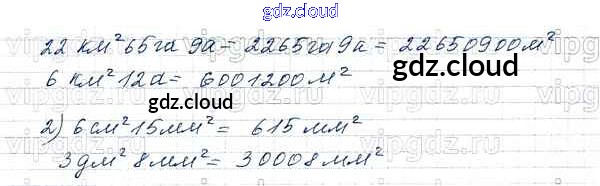 gdz.cloud
22 км²65га 9а = 2265га 9а = 22650900м²
6 км²12а = 6001200м²
gdz.cloud
gdz.cloud
2) 6см²15мм² = 615мм²
3дм²8мм² = 30008мм²